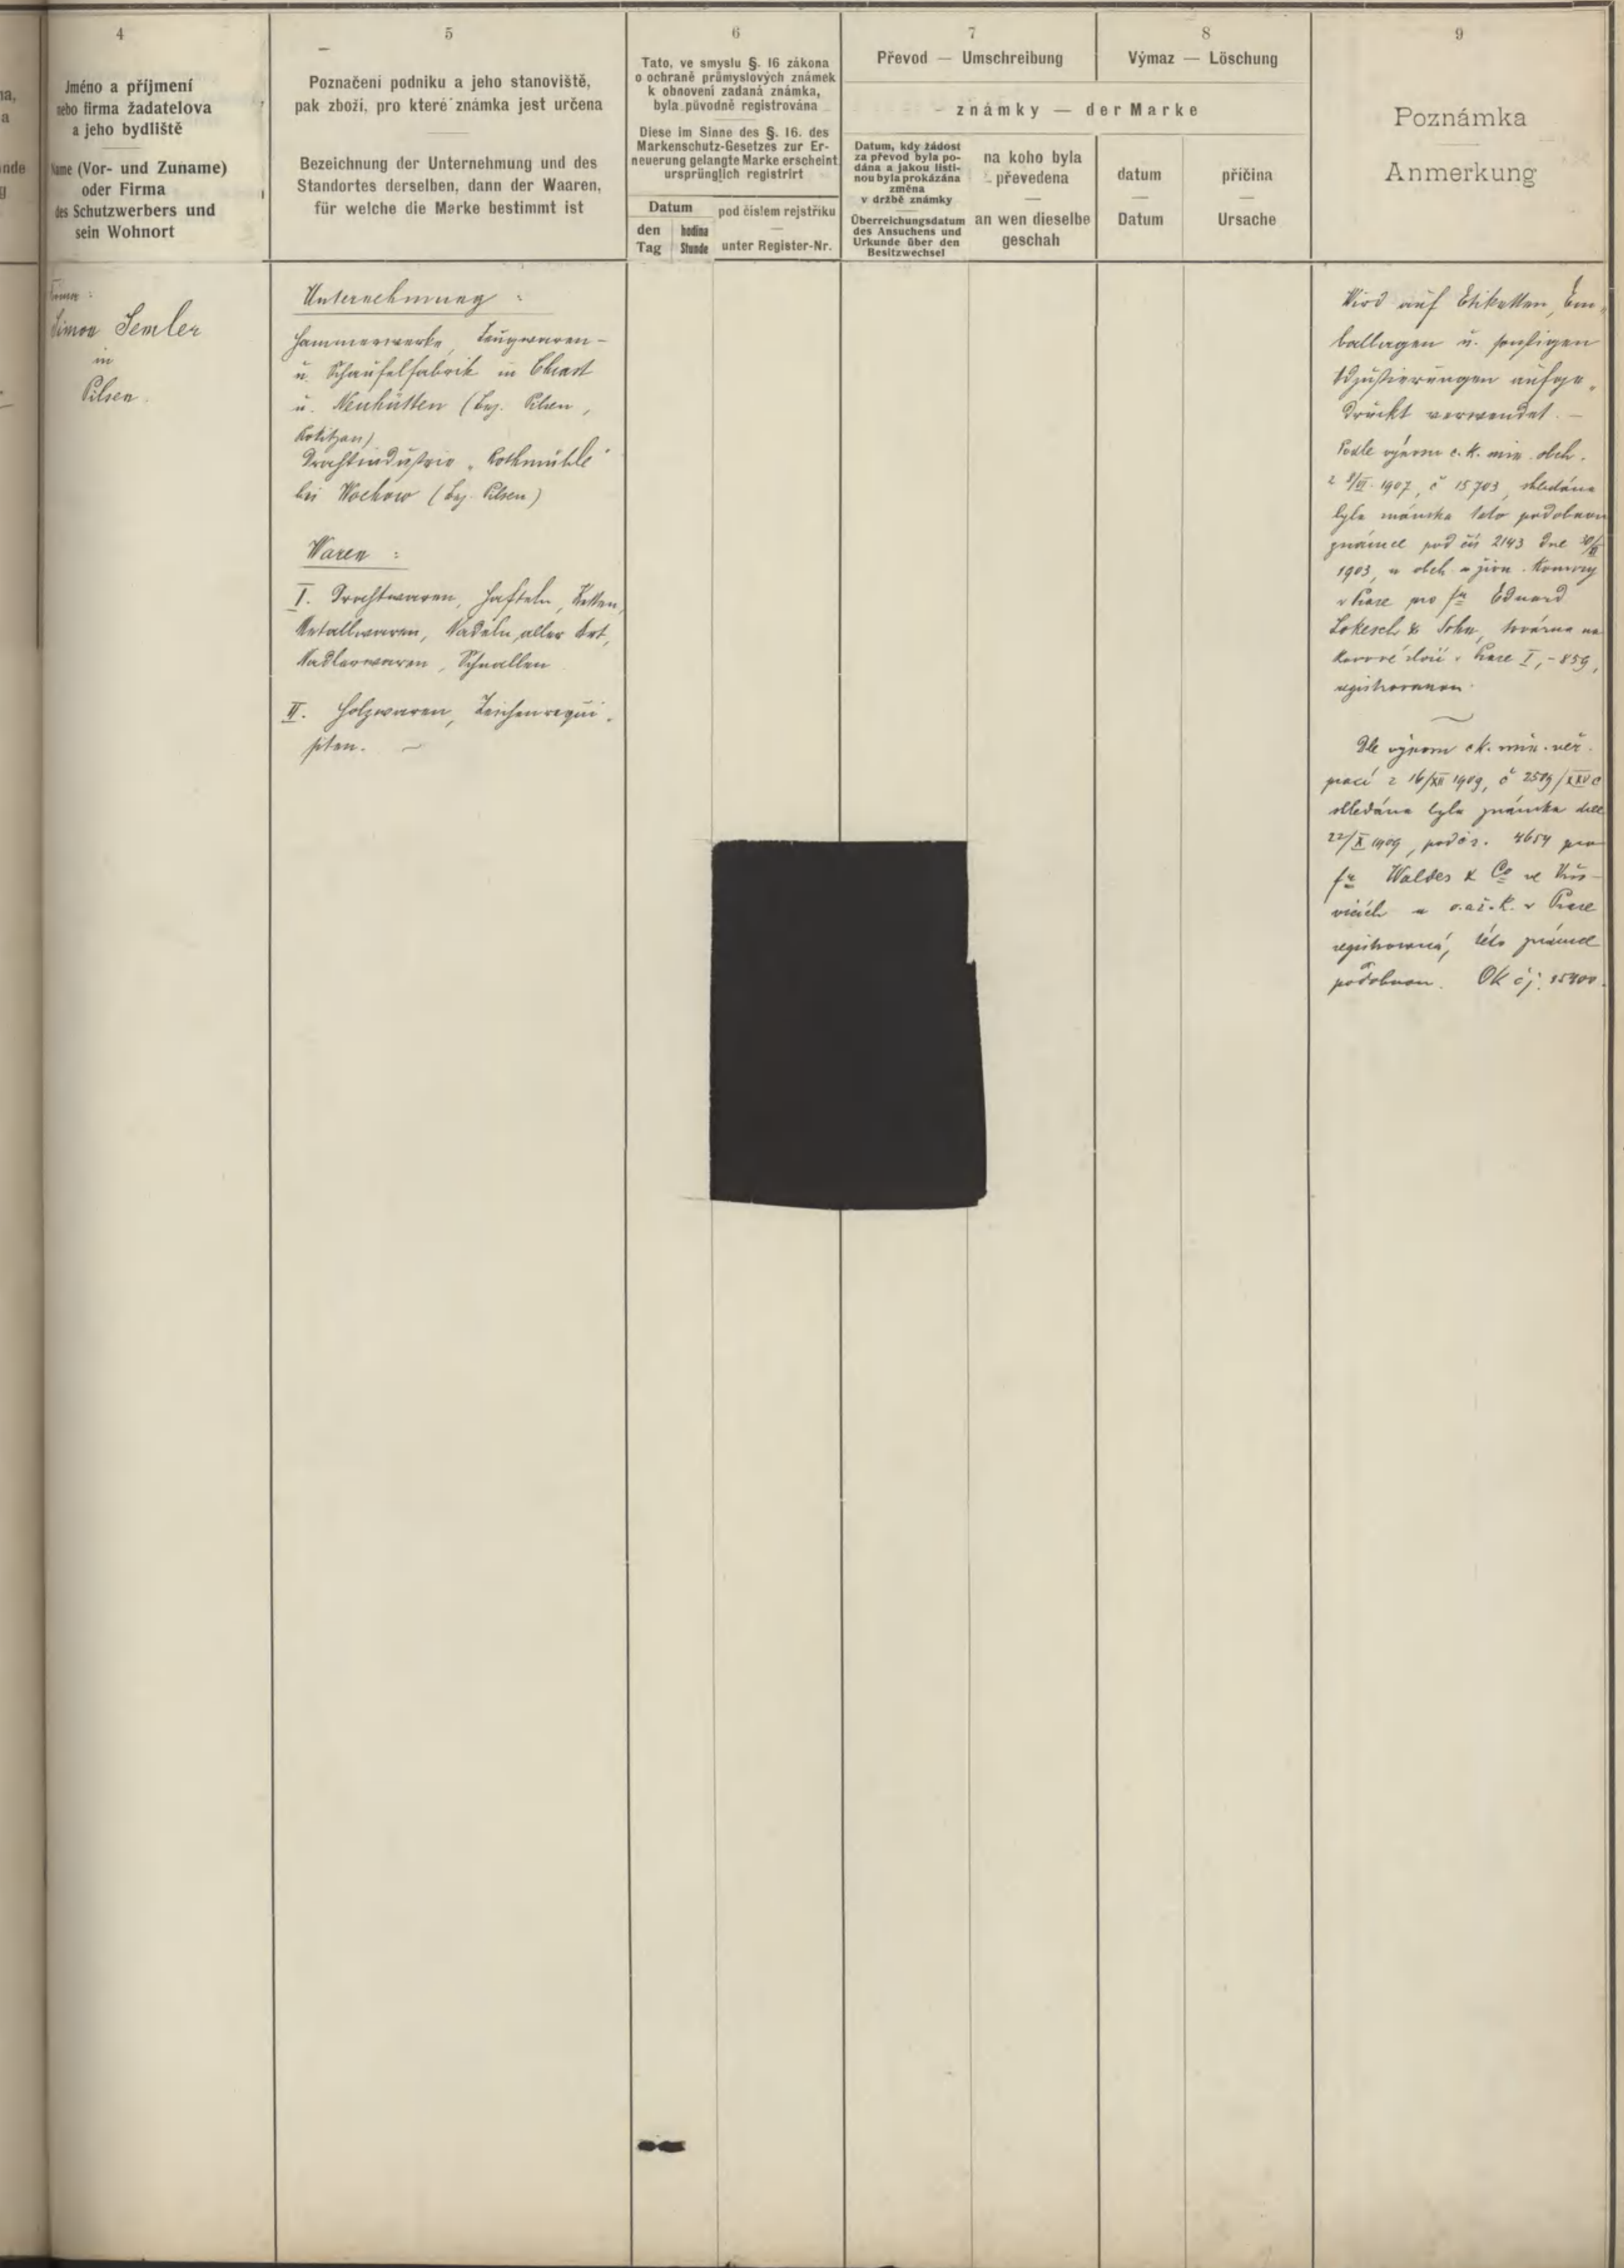 na,
a
nde
g
4
Jméno a příjmení
nebo firma žadatelova
a jeho bydliště
Name (Vor- und Zuname)
oder Firma
des Schutzwerbers und
sein Wohnort
5
Poznačení podniku a jeho stanoviště,
pak zboží, pro které známka jest určena
Bezeichnung der Unternehmung und des
Standortes derselben, dann der Waaren,
für welche die Marke bestimmt ist
6
Tato, ve smyslu §. 16 zákona
o ochraně průmyslových známek
k obnovení zadaná známka,
byla původně registrována
Diese im Sinne des §. 16. des
Markenschutz-Gesetzes zur Er-
neuerung gelangte Marke erscheint
ursprünglich registrirt
Datum
den hodina
Tag Stunde
pod číslem rejstříku
—
unter Register-Nr.
7
Převod — Umschreibung
8
Výmaz — Löschung
známky — der Marke
Datum, kdy žádost
za převod byla po-
dána a jakou listi-
nou byla prokázána
změna
v držbě známky
Überreichungsdatum
des Ansuchens und
Urkunde über den
Besitzwechsel
na koho byla
převedena
—
an wen dieselbe
geschah
datum
—
Datum
příčina
—
Ursache
9
Poznámka
Anmerkung
Firma:
Simon Semler
in
Pilsen.
Unternehmung:
Hammerwerke, Zeugwaren-
u. Schaufelfabrik in Chrast
u. Neuhütten (Bez. Pilsen,
Rokitzan)
Drahtindustrie „Rothmühle"
bei Wochow (Bez. Pilsen)
Waren:
I. Drahtwaren, Hafteln, Ketten,
Metallwaren, Nadeln aller Art,
Nadlerwaren, Schnallen
II. Holzwaren, Zeichenrequi-
siten. —
Wird auf Etiketten, Em-
ballagen u. sonstigen
Adjustierungen aufge-
druckt verwendet. —
Podle výnosu c. k. min. obch.
z 8/VI. 1907, č 15703, shledána
byla známka tato podobnou
známce pod čís 2143 dne
1903, u obch. a živn. komory
v Praze pro fu Eduard
Lokesch & Sohn, továrna na
kovové zboží v Praze I, - 859,
registrovanou.
Dle výnosu c k. min. veř.
prací z 16/XII 1909, č 2509/XXVc
shledána byla známka dne
22/X 1909, pod čís. 4654 pro
fu Waldes & Co ve Vrš-
ovicích u o. a ž. k. v Praze
registrovaná, této známce
podobnou. OK čj. 15400.